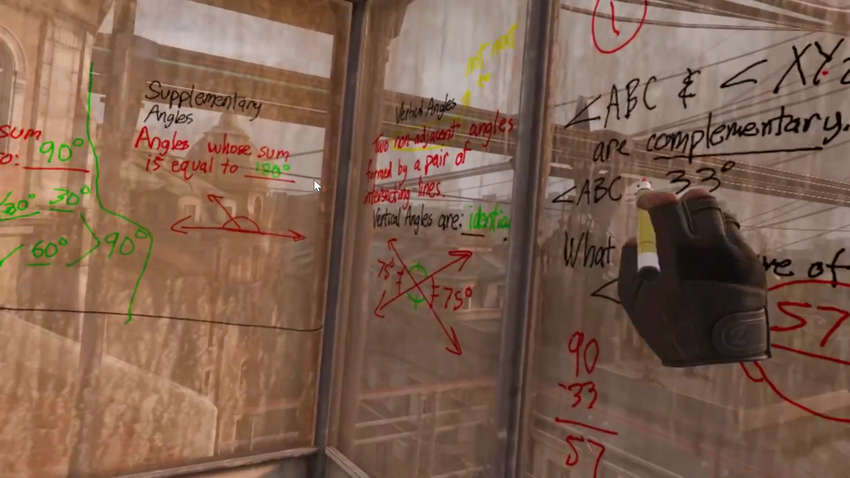 sum
o: 90°
60° 30°
60° 90°
Supplementary
Angles
Angles whose sum
is equal to 180°
not next
to
Vertical Angles
Two non-adjacent angles
formed by a pair of
intersecting lines.
Vertical Angles are: identical
75°
75°
1
∠ABC & ∠XYZ
are complementary.
∠ABC 33°
What re of
∠
57
90
-33
57